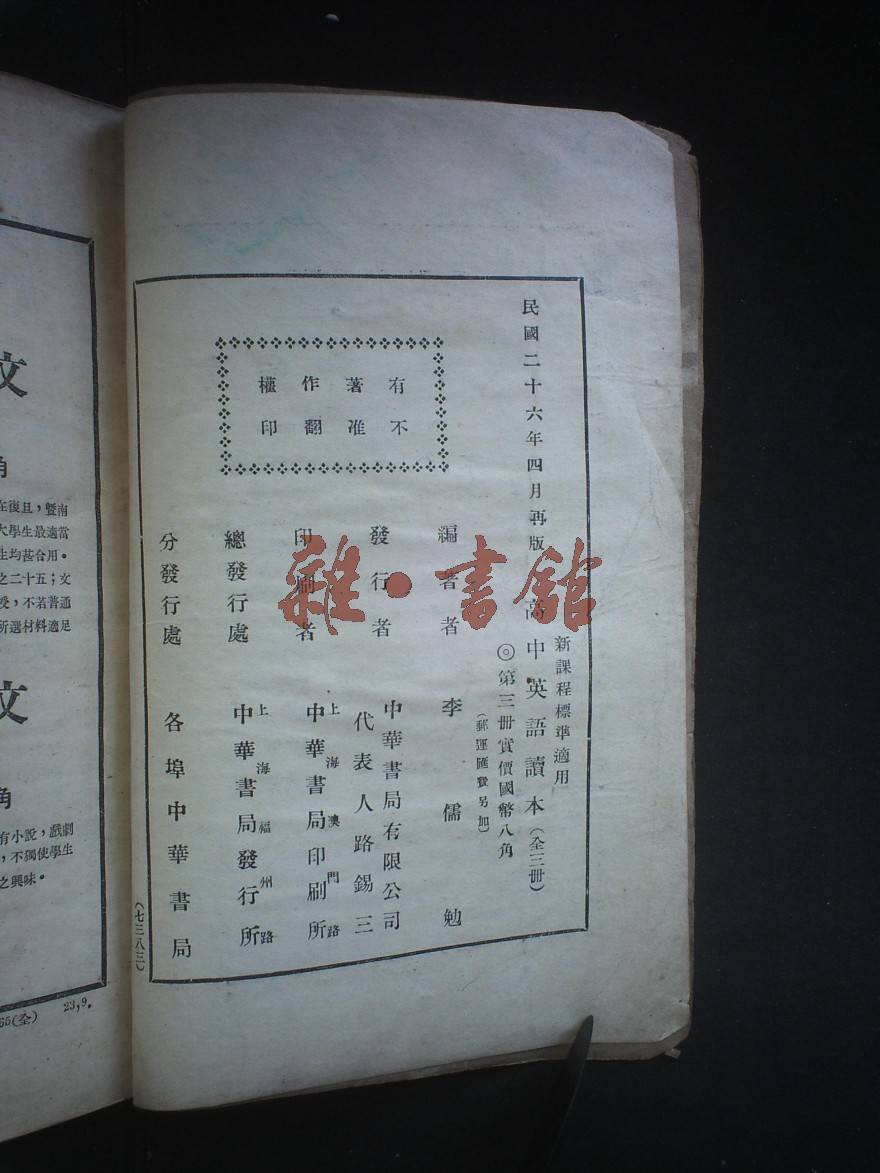 民國二十六年四月再版
新課程標準適用
高中英語讀本(全三冊)
◎第三冊實價國幣八角
(郵運匯費另加)
有不
著准
作翻
權印
編著者 李儒勉
發行者 中華書局有限公司
代表人路錫三
印刷者 上海澳門路
中華書局印刷所
總發行處 上海福州路
中華書局發行所
分發行處 各埠中華書局
(七三八三)
雜·書館
文
角
在復旦,暨南
大學生最適當
生均甚合用。
之二十五;文
授,不若普通
所選材料適足
文
角
有小說,戲劇
,不獨使學生
之興味。
65(全) 23,9.